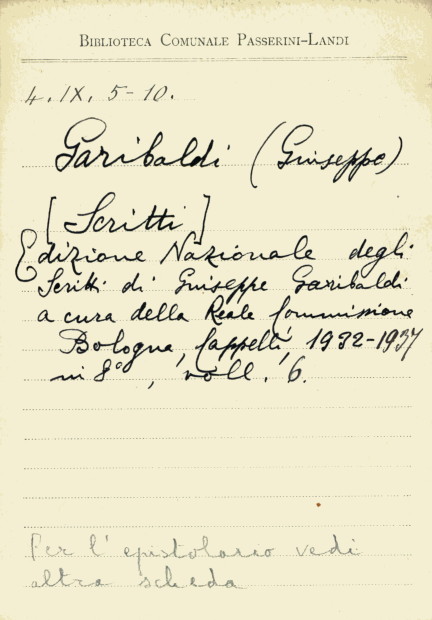 BIBLIOTECA COMUNALE PASSERINI-LANDI
4. IX. 5-10.
Garibaldi (Giuseppe)
[Scritti]
Edizione Nazionale degli
Scritti di Giuseppe Garibaldi
a cura della Reale Commissione
Bologna, Cappelli, 1932-1937
in 8°, voll. 6.
Per l'epistolario vedi
altra scheda